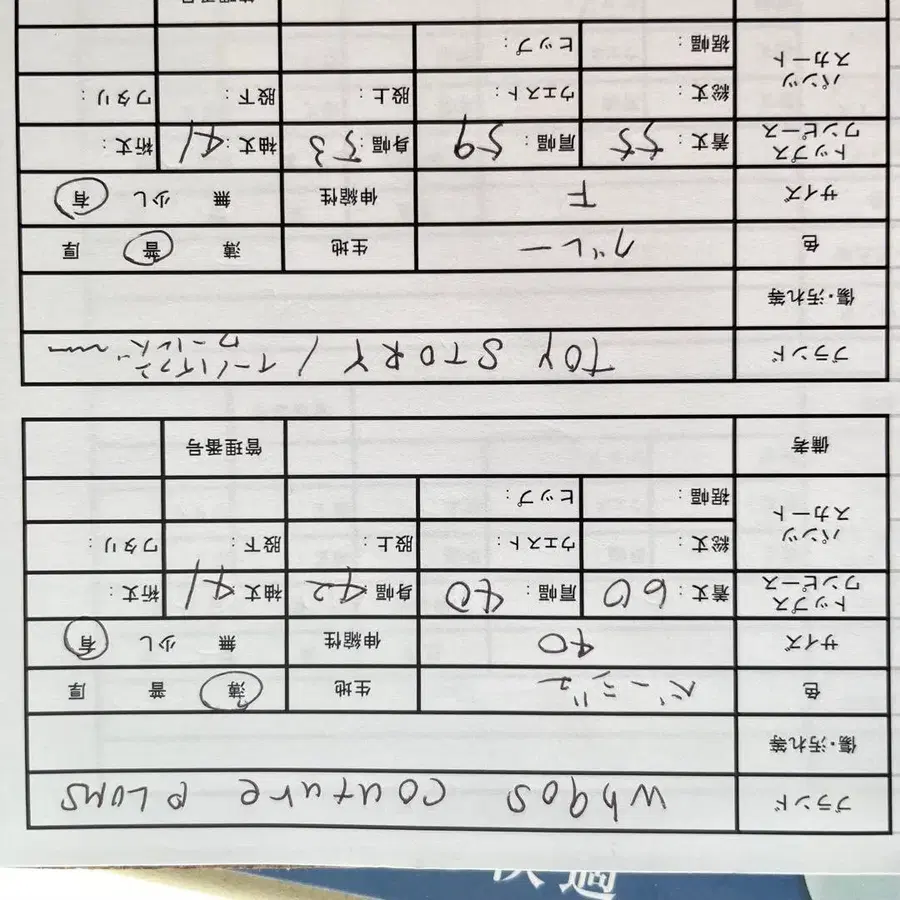 ブランド couture
傷・汚れ等
色 ベージュ 生地 薄 普 厚
サイズ 40 伸縮性 無 少し 有
トップス
ワンピース 着丈:60 肩幅:40 身幅:42 袖丈:41 裄丈:
パンツ
スカート 総丈: ウエスト: 股上: 股下: ワタリ:
裾幅: ヒップ:
備考 管理番号
ブランド TOY STORY /
傷・汚れ等
色 グレー 生地 薄 普 厚
サイズ F 伸縮性 無 少し 有
トップス
ワンピース 着丈:55 肩幅:59 身幅:53 袖丈:41 裄丈:
パンツ
スカート 総丈: ウエスト: 股上: 股下: ワタリ:
裾幅: ヒップ:
快適